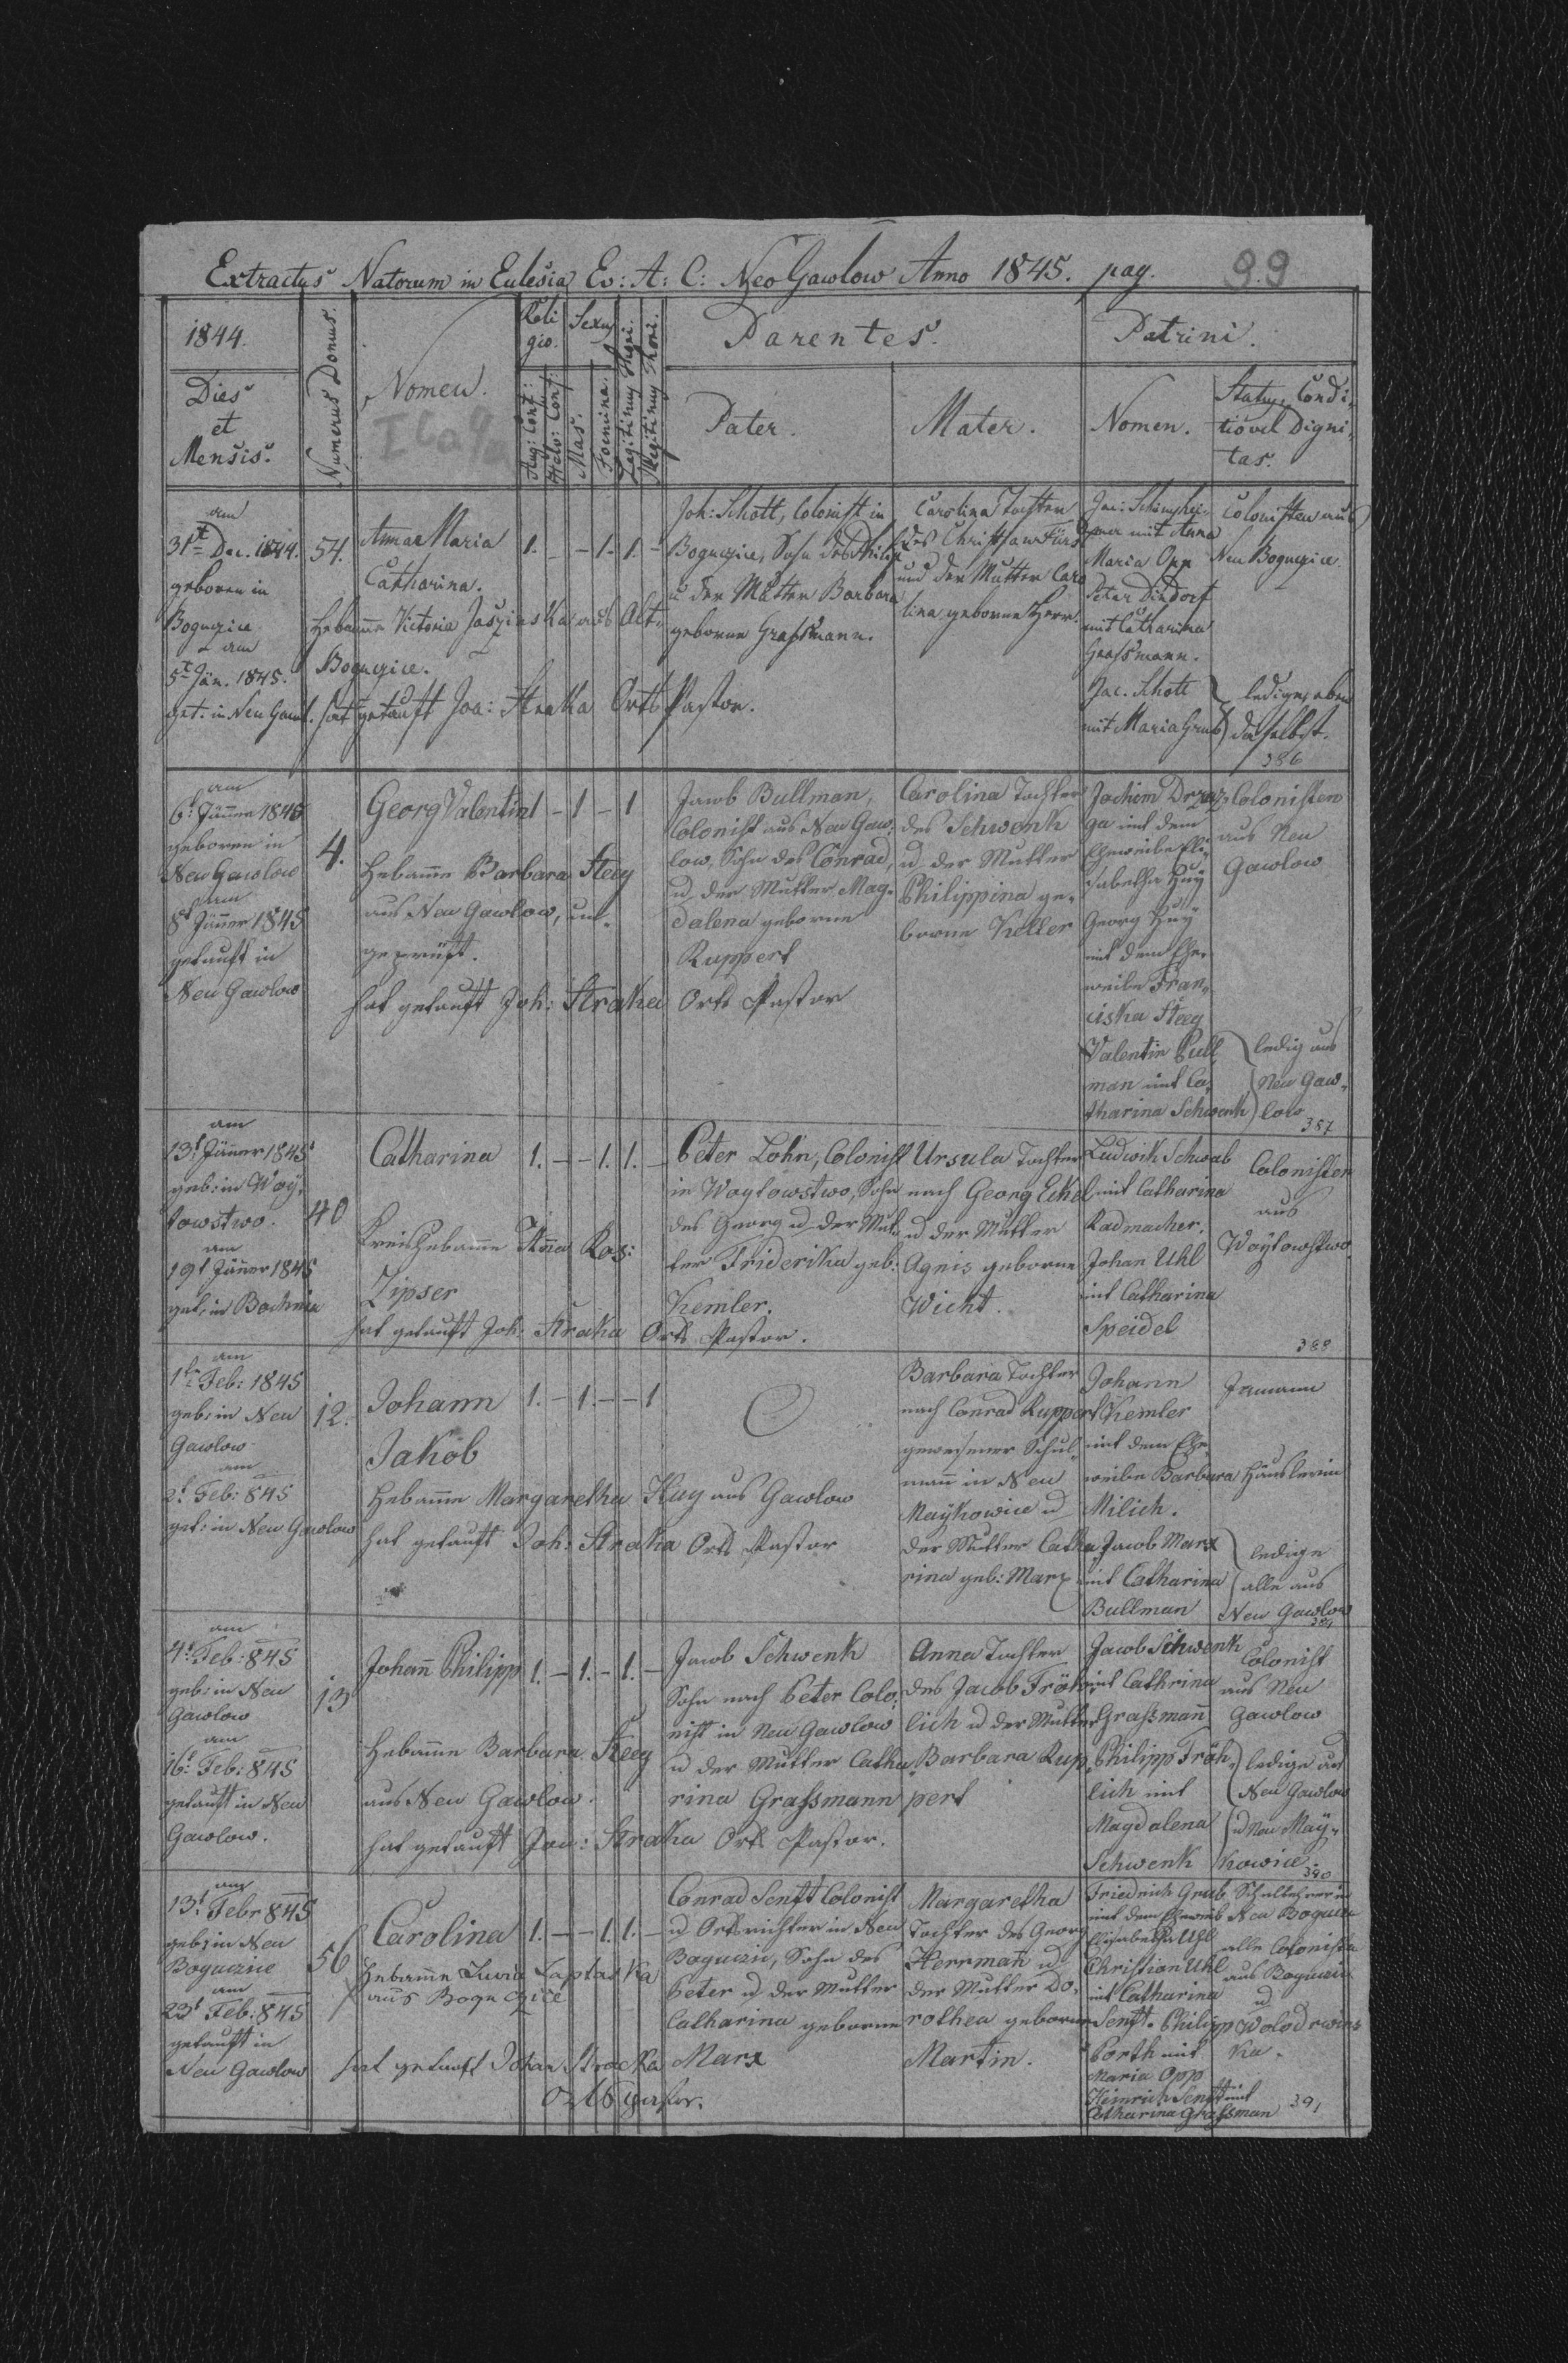 Extractus Natorum in Eulesia Ev: A: C: Neo Gawlow Anno 1845. pag. 99
1844.
Dies
et
Mensis.
Numerus Domus.
Nomen.
Reli
gio.
Sexus
Aug: Conf:
Helv: Conf:
Mas.
Foemina.
Legitimy Thori.
Illegitimy Thori.
Parentes.
Pater.
Mater.
Patrini.
Nomen.
Status, Condi,
tiovel Digni,
tas.
am
31t Dec. 1844.
geboren in
Bogucice
am
5t Jän. 1845.
get: in Neu Gawl.
54.
Anna Maria
Catharina.
1. - - 1. 1. -
Hebamme Victoria aus Alt
Bogucice.
hat getauft Joa: Straka Orts Pastor.
Joh: Schott, Colonist in
Bogucice, Sohn des Philip
u der Mutter Barbara
geborne Graſsmann.
Carolina Tochter
des Christian Fürs
und der Mutter Caro
lina geborne Herr.
mit Anna
Maria Opp
Peter Dindorf
mit Catharina
Graſsmann.
Jac. Schott
mit Maria Grub
Colonisten aus
Neu Bogucice.
ledige, eben
daselbst.
386
am
6t Jänner 1845
geboren in
Neu Gawlow
am
8t Jänner 1845
getauft in
Neu Gawlow
4.
Georg Valentin 1 - 1 - 1
Hebamme Barbara Steey
aus Neu Gawlow, un-
geprüft.
hat getauft Joh: Straka Orts Pastor
Jacob Bullman,
Colonist aus Neu Gaw,
low, Sohn des Conrad,
u der Mutter Mag-
dalena geborne
Ruppert
Carolina Tochter
des Schwenk
u der Mutter
Philippina ge-
borne Keller
Jochim Drzaz-
ga mit dem
Eheweibe Eli-
sabetha Huÿ
Georg Huÿ
mit dem Ehe-
weibe Fran-
ciska Steey
Valentin Bull
man mit Ca-
tharina Schwenk
Colonisten
aus Neu
Gawlow
ledig aus
Neu Gaw-
low
387
am
13t Jänner 1845
geb: in Woÿ,
towstwo.
am
19t Jänner 1845
get: in Bochnia
40
Catharina 1. - - 1. 1. -
Kreishebamme Anna Ros:
Zipser
hat getauft Joh: Straka Orts Pastor.
Peter Lohn, Colonist
in Woytowstwo, Sohn
des Georg u der Mut-
ter Friderika geb:
Kemler.
Ursula Tochter
nach Georg Eckel
u der Mutter
Agnis geborne
Wicht.
Ludwik Schwab
mit Catharina
Radmacher.
Johan Uhl
mit Catharina
Speidel
Colonisten
aus
Woÿtowstwo
388
am
1t Feb: 1845
geb: in Neu
Gawlow
am
2t Feb: 845
get: in Neu Gawlow
12.
Johann 1. - 1. - - 1
Jakob
Hebamme Margaretha Huy aus Gawlow
hat getauft Joh: Straka Orts Pastor
Barbara Tochter
nach Conrad Ruppert
gewesener Schul-
mann in Neu
Maÿkowice u
der Mutter Catha
rina geb: Marx
Johann
Kemler
mit dem Ehe-
weibe Barbara
Milich.
Jacob Marx
mit Catharina
Bullman
Inmann
Häuslerin
ledige
alle aus
Neu Gawlow
389
am
4t Feb: 845
geb: in Neu
Gawlow
am
16t Feb: 845
getauft in Neu
Gawlow.
13
Johann Philipp 1. - 1. - 1. -
Hebamme Barbara Steey
aus Neu Gawlow.
hat getauft Joa: Straka Orts Pastor.
Jacob Schwenk
Sohn nach Peter Colo-
nist in Neu Gawlow
u der Mutter Catha
rina Graſsmann
Anna Tochter
des Jacob Fröh-
lich u der Mutter
Barbara Rup
pert
Jacob Schwenk
mit Cathrina
Graſsmann
Philipp Fröh-
lich mit
Magdalena
Schwenk
Colonist
aus Neu
Gawlow
ledige aus
Neu Gawlow
u Neu Maÿ-
kowice.
390
am
13t Febr 845
geb: in Neu
Bogucice
am
23t Feb: 845
getauft in
Neu Gawlow
56
Carolina 1. - - 1. 1. -
Hebamme Laptaska
aus Bogucice
hat getauft Johan Stracka
Orts Pastor.
Conrad Senft Colonist
u Ortsrichter in Neu
Bogucice, Sohn des
Peter u der Mutter
Catharina geborne
Marx
Margaretha
Tochter des Georg
Herrman u
der Mutter Do-
rothea geborne
Martin.
Friedrich Grub
mit dem Eheweib
Elisabetha Uhl
Christian Uhl
mit Catharina
Senft. Philipp
Porth mit
Maria Opp
Heinrich Senft mit
Catharina Graſsman
Schullehrer in
Neu Bogucice
alle Colonisten
aus Bogucice
u
Wolodrwins
ka.
391